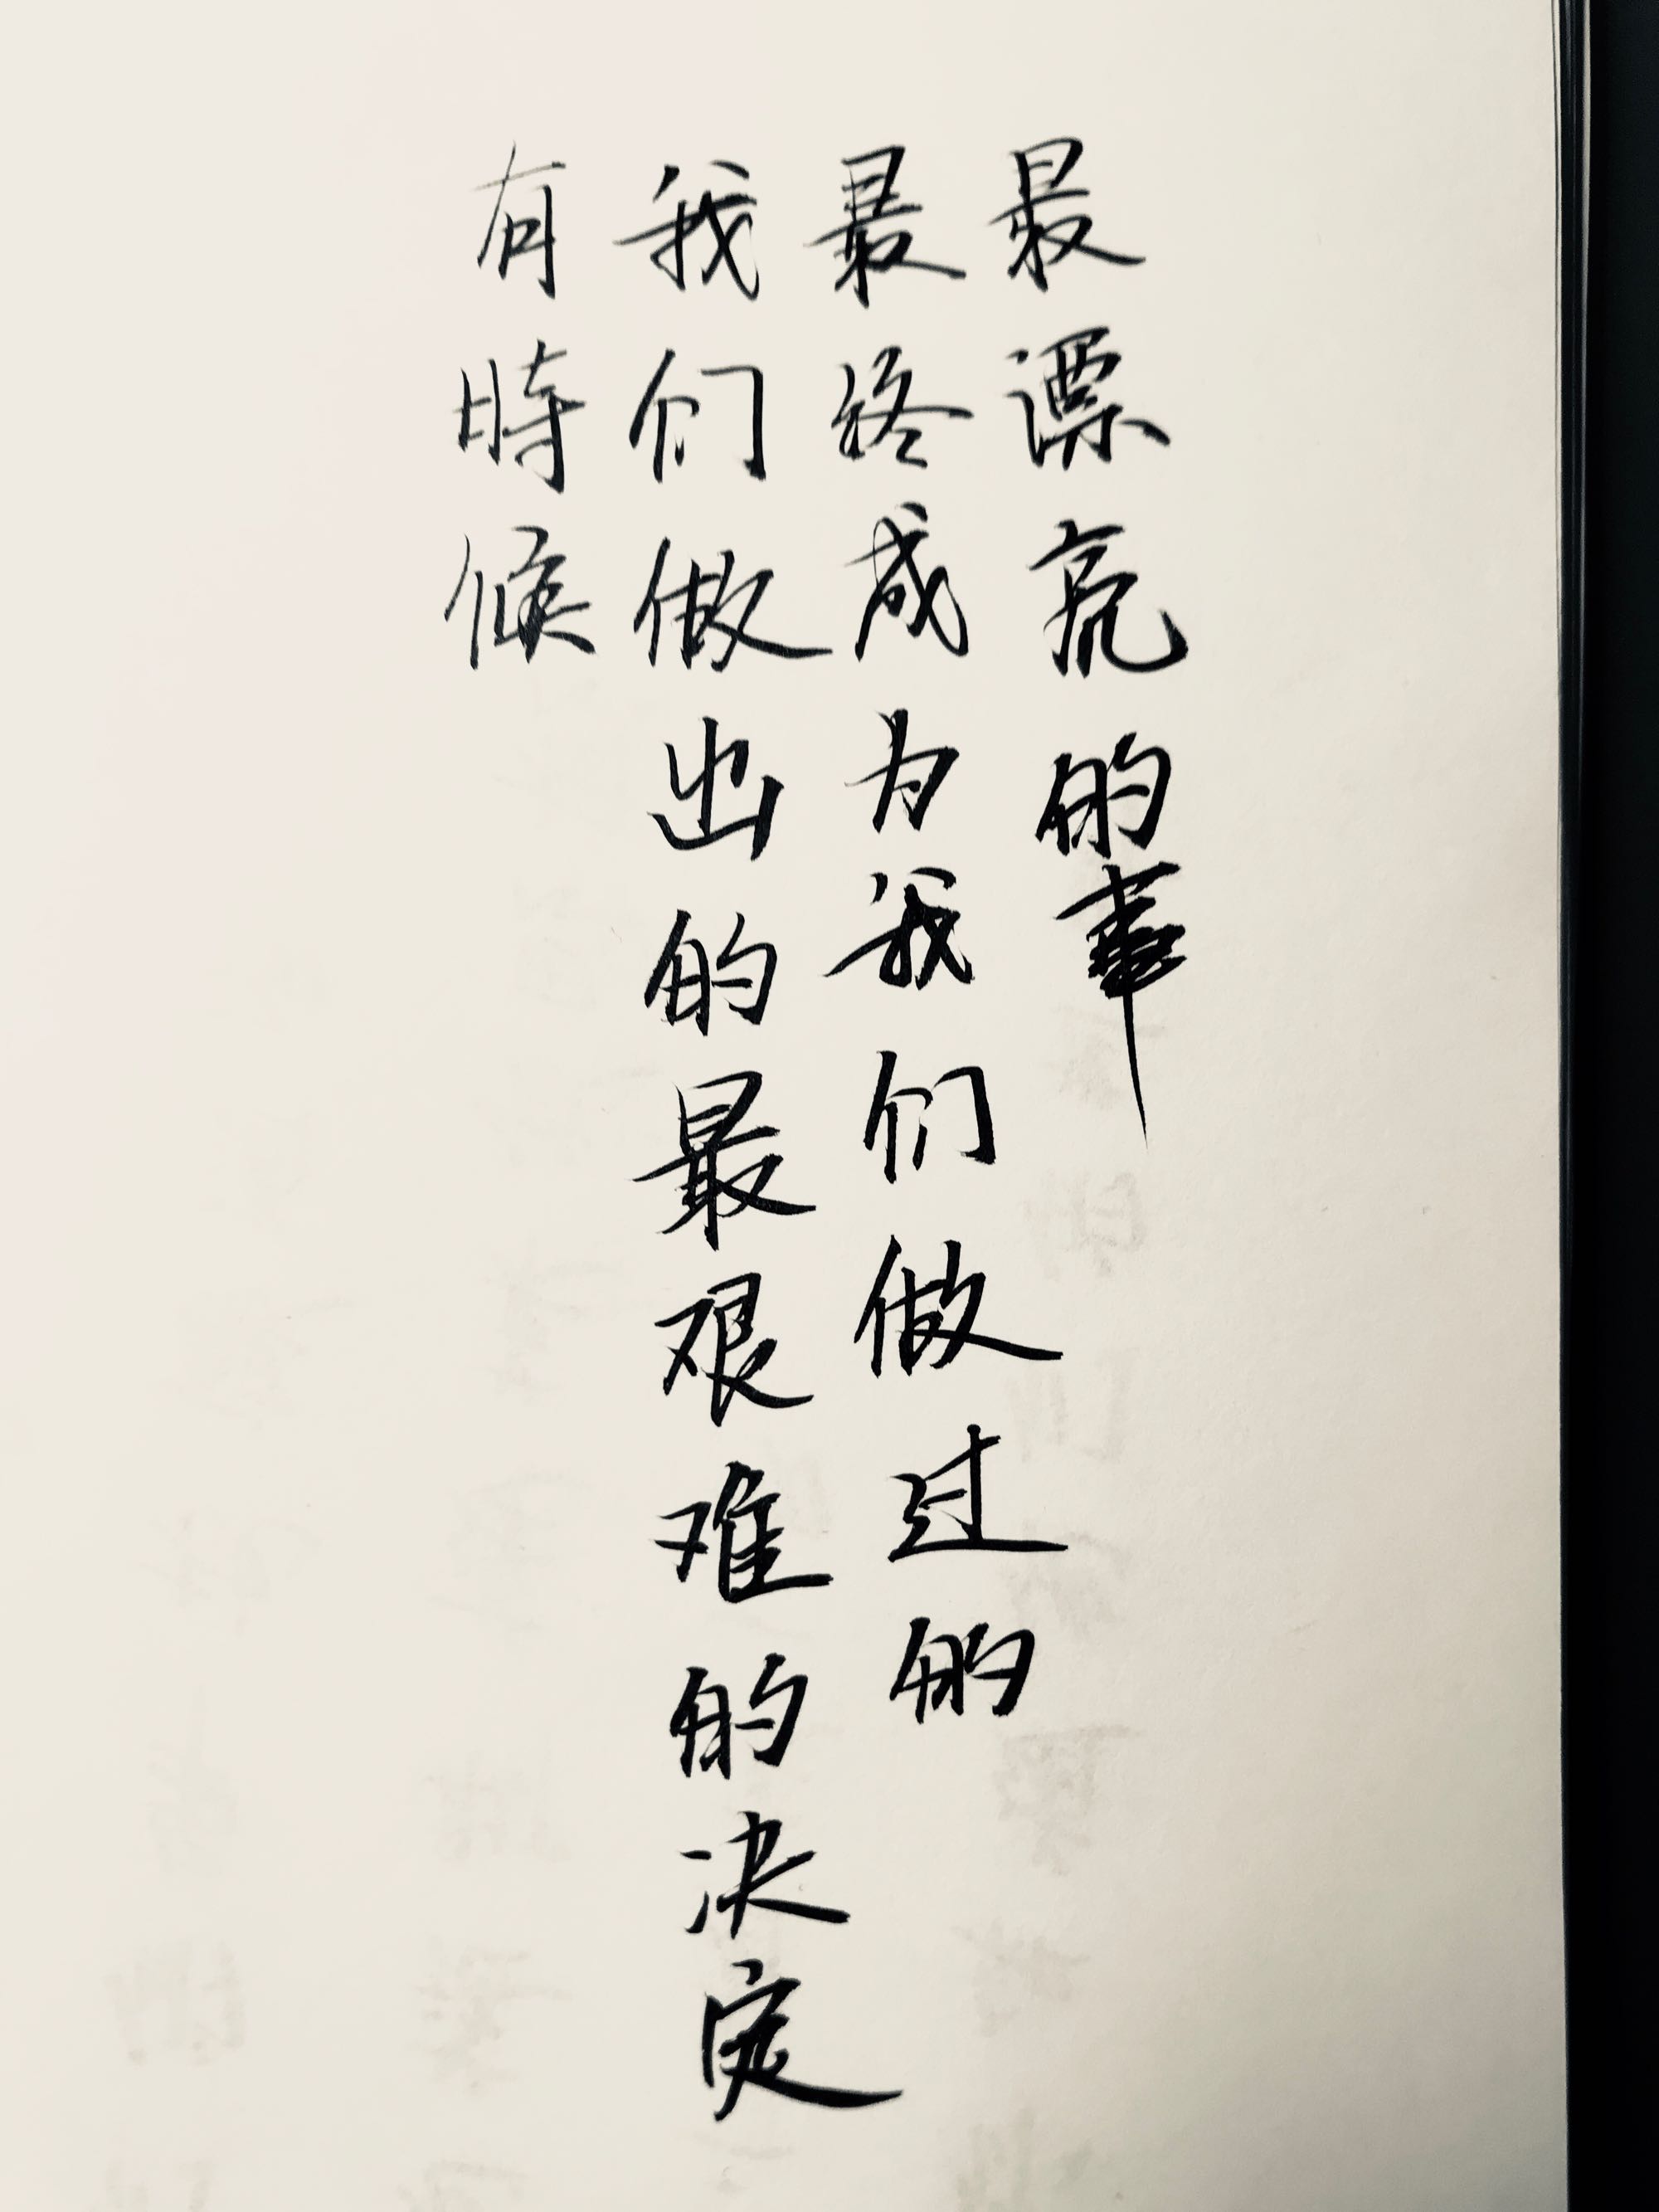 有時候
我们做出的最艰难的决定
最终成为我们做过的
最漂亮的事